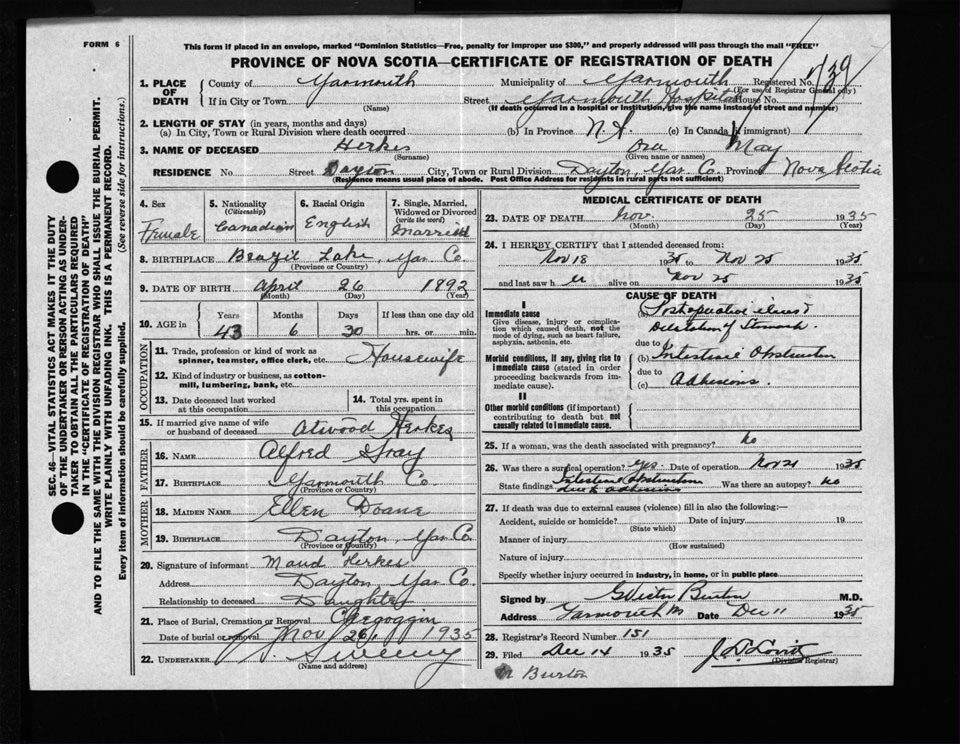 FORM 6
This form if placed in an envelope, marked "Dominion Statistics—Free, penalty for improper use $300," and properly addressed will pass through the mail "FREE"
PROVINCE OF NOVA SCOTIA—CERTIFICATE OF REGISTRATION OF DEATH
1. PLACE OF DEATH
County of Yarmouth Municipality of Yarmouth Registered No.
(For use of Registrar General only)
If in City or Town Street Yarmouth Hospital House No.
(Name) (If death occurred in a hospital or institution, give the name instead of street and number)
2. LENGTH OF STAY (in years, months and days)
(a) In City, Town or Rural Division where death occurred (b) In Province N.S. (c) In Canada (if immigrant)
3. NAME OF DECEASED Herkes Ora May
(Surname) (Given name or names)
RESIDENCE No. Street Dayton City, Town or Rural Division Dayton, Yar. Co. Province Nova Scotia
(Residence means usual place of abode. Post Office Address for residents in rural parts not sufficient)
4. Sex
Female
5. Nationality
(Citizenship)
Canadian
6. Racial Origin
English
7. Single, Married, Widowed or Divorced
(write the word)
Married
8. BIRTHPLACE Brazil Lake, Yar. Co.
(Province or Country)
9. DATE OF BIRTH April 26 1892
(Month) (Day) (Year)
10. AGE in
Years Months Days If less than one day old
43 6 30 hrs. or min.
OCCUPATION
11. Trade, profession or kind of work as spinner, teamster, office clerk, etc. Housewife
12. Kind of industry or business, as cotton-mill, lumbering, bank, etc.
13. Date deceased last worked at this occupation
14. Total yrs. spent in this occupation
15. If married give name of wife or husband of deceased Atwood Herkes
FATHER
16. NAME Alfred Gray
17. BIRTHPLACE Yarmouth Co.
(Province or Country)
MOTHER
18. MAIDEN NAME Ellen Doane
19. BIRTHPLACE Dayton, Yar. Co.
(Province or Country)
20. Signature of informant Maud Herkes
Address Dayton, Yar Co.
Relationship to deceased Daughter
21. Place of Burial, Cremation or Removal Chegoggin
Date of burial or removal Nov 26, 1935
22. UNDERTAKER Sweeny
(Name and address)
MEDICAL CERTIFICATE OF DEATH
23. DATE OF DEATH Nov. 25 1935
(Month) (Day) (Year)
24. I HEREBY CERTIFY that I attended deceased from:
Nov 18 1935 to Nov 25 1935
and last saw h alive on Nov 25 1935
CAUSE OF DEATH
I
Immediate cause
Give disease, injury or complication which caused death, not the mode of dying, such as heart failure, asphyxia, asthenia, etc.
(a) Postoperative ileus &
Dilatation of Stomach.
due to
Morbid conditions, if any, giving rise to immediate cause (stated in order proceeding backwards from immediate cause).
(b) Intestinal Obstruction
due to
(c) Adhesions.
II
Other morbid conditions (if important) contributing to death but not causally related to immediate cause.
25. If a woman, was the death associated with pregnancy? No
26. Was there a surgical operation? Yes Date of operation Nov 21 1935
State findings Intestinal Obstruction due to adhesions Was there an autopsy? No
27. If death was due to external causes (violence) fill in also the following:—
Accident, suicide or homicide? Date of injury 19
(State which)
Manner of injury
(How sustained)
Nature of injury
Specify whether injury occurred in industry, in home, or in public place
Signed by Burton M.D.
Address Yarmouth Date Dec 11 1935
28. Registrar's Record Number 151
29. Filed Dec 14 1935
(Division Registrar)
Burton
SEC. 46—VITAL STATISTICS ACT MAKES IT THE DUTY OF THE UNDERTAKER OR PERSON ACTING AS UNDERTAKER TO OBTAIN ALL THE PARTICULARS REQUIRED IN THE "CERTIFICATE OF REGISTRATION OF DEATH"
AND TO FILE THE SAME WITH THE DIVISION REGISTRAR WHO SHALL ISSUE THE BURIAL PERMIT.
WRITE PLAINLY WITH UNFADING INK. THIS IS A PERMANENT RECORD.
Every item of information should be carefully supplied. (See reverse side for instructions.)